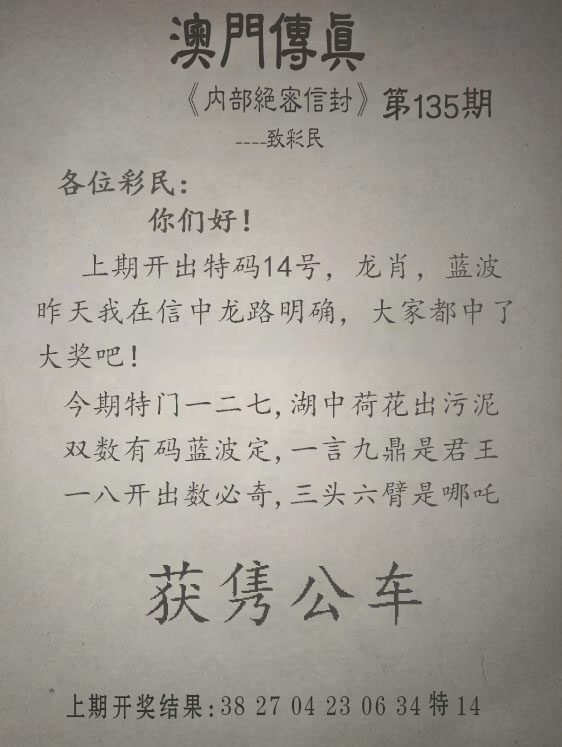 澳門傳眞
《内部絕密信封》第135期
----致彩民
各位彩民:
你们好!
上期开出特码14号，龙肖，蓝波
昨天我在信中龙路明确，大家都中了
大奖吧!
今期特门一二七,湖中荷花出污泥
双数有码蓝波定,一言九鼎是君王
一八开出数必奇,三头六臂是哪吒
获隽公车
上期开奖结果:38 27 04 23 06 34 特 14